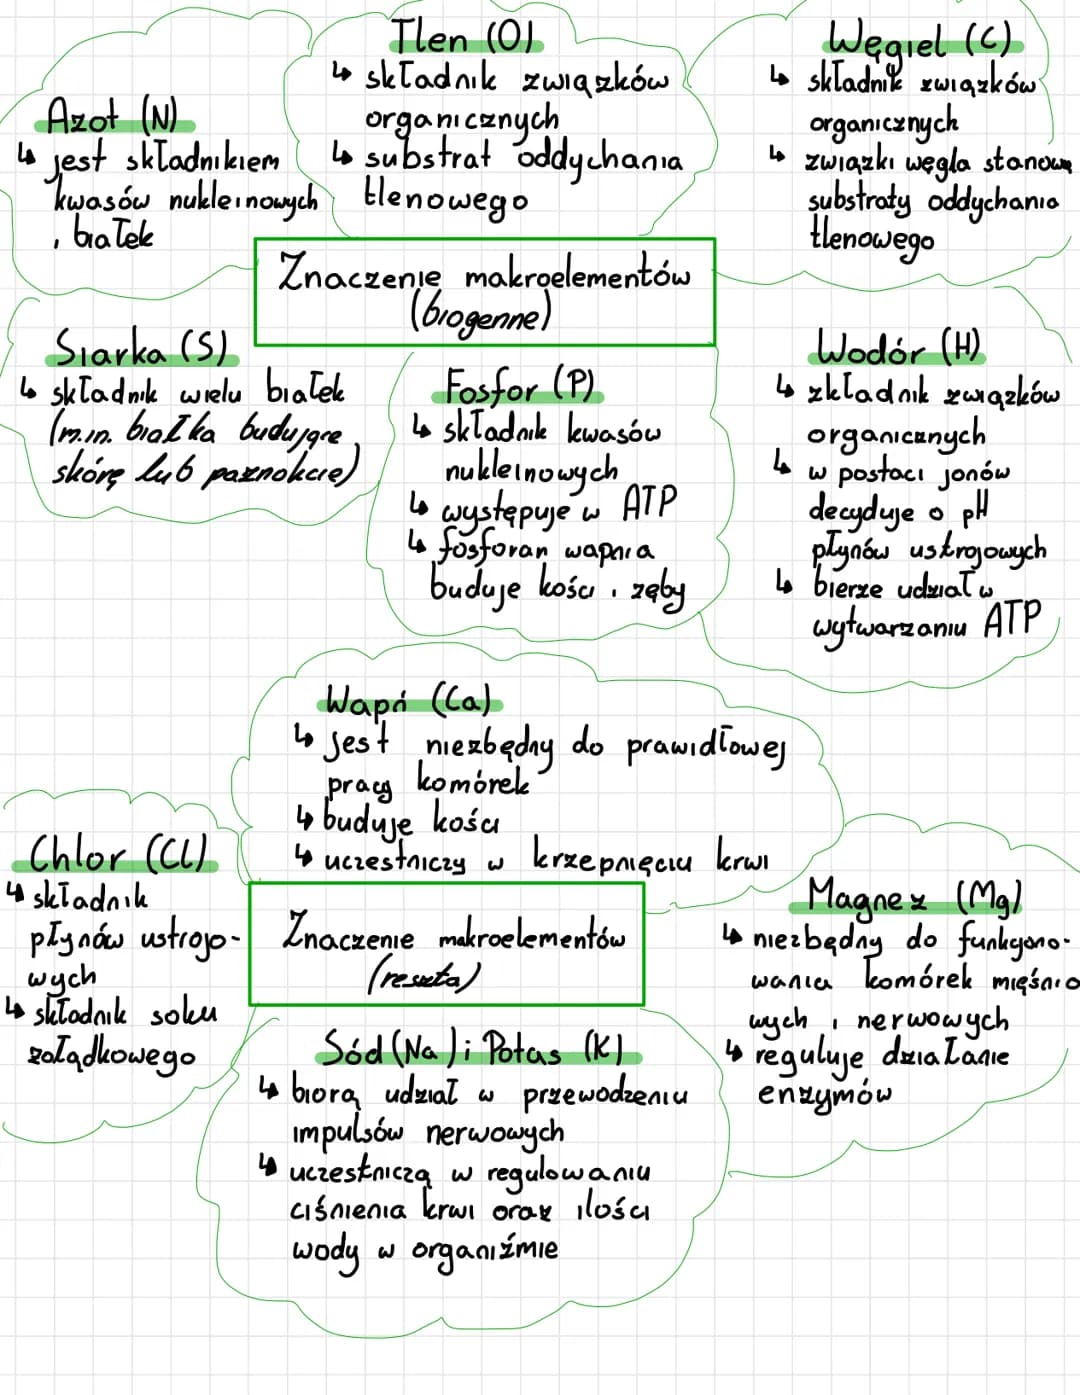 Azot (N)
↳ jest składnikiem
kwasów nukleinowych
i białek
Tlen (O)
↳ składnik związków
organicznych
↳ substrat oddychania
tlenowego
Węgiel (C)
↳ składnik związków
organicznych
↳ związki węgla stanowią
substraty oddychania
tlenowego
Znaczenie makroelementów
(biogenne)
Siarka (S)
↳ składnik wielu białek
(m.in. białka budujące
skórę lub paznokcie)
Fosfor (P)
↳ składnik kwasów
nukleinowych
↳ występuje w ATP
↳ fosforan wapnia
buduje kości i zęby
Wodór (H)
↳ zkładnik związków
organicznych
↳ w postaci jonów
decyduje o pH
płynów ustrojowych
↳ bierze udział w
wytwarzaniu ATP
Wapń (Ca)
↳ jest niezbędny do prawidłowej
pracy komórek
↳ buduje kości
↳ uczestniczy w krzepnięciu krwi
Chlor (Cl)
↳ składnik
płynów ustrojo-
wych
↳ składnik soku
żołądkowego
Znaczenie makroelementów
(reszta)
Magnez (Mg)
↳ niezbędny do funkcjono-
wania komórek mięśnio
wych i nerwowych
↳ reguluje działanie
enzymów
Sód (Na) i Potas (K)
↳ biorą udział w przewodzeniu
impulsów nerwowych
↳ uczestniczą w regulowaniu
ciśnienia krwi oraz ilości
wody w organiźmie